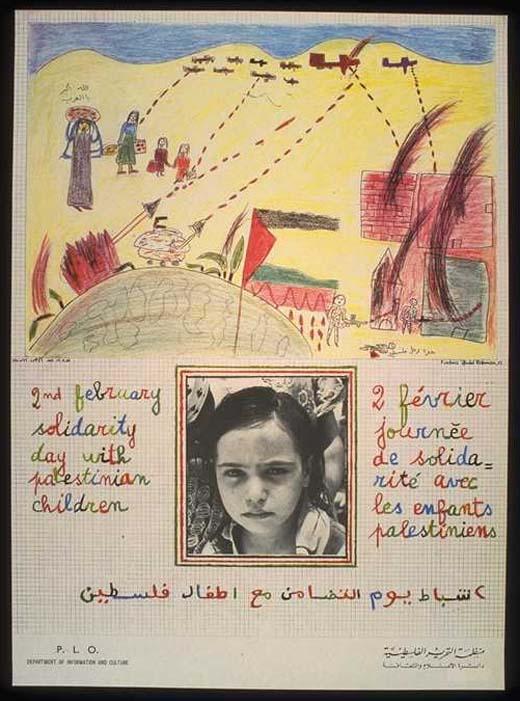 2nd february
solidarity
day with
palestinian
children
2 février
journée
de solida=
rité avec
les enfants
palestiniens
٢ شباط يوم التضامن مع اطفال فلسطين
P. L. O.
DEPARTMENT OF INFORMATION AND CULTURE
منظمة التحرير الفلسطينية
دائرة الاعلام والثقافة